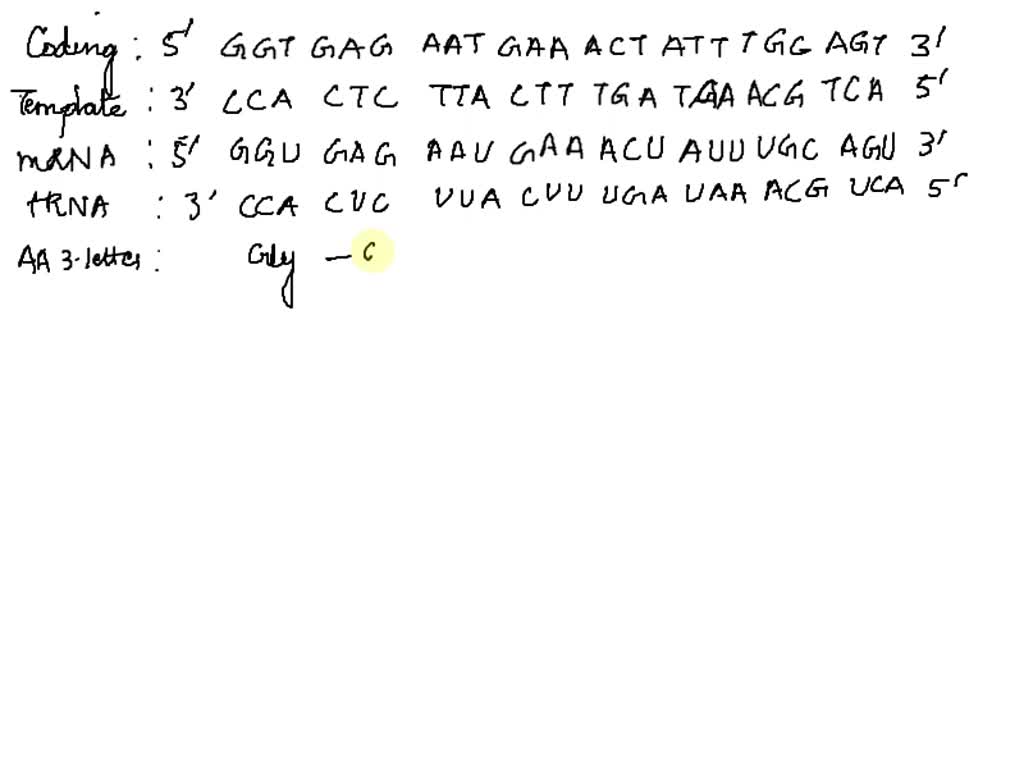 Coding : 5' GGT GAG AAT GAA ACT ATT TGC AGT 3'
Template : 3' CCA CTC TTA CTT TGA TAA ACG TCA 5'
mRNA : 5' GGU GAG AAU GAA ACU AUU UGC AGU 3'
tRNA : 3' CCA CUC UUA CUU UGA UAA ACG UCA 5'
AA 3-letter : Gly – C